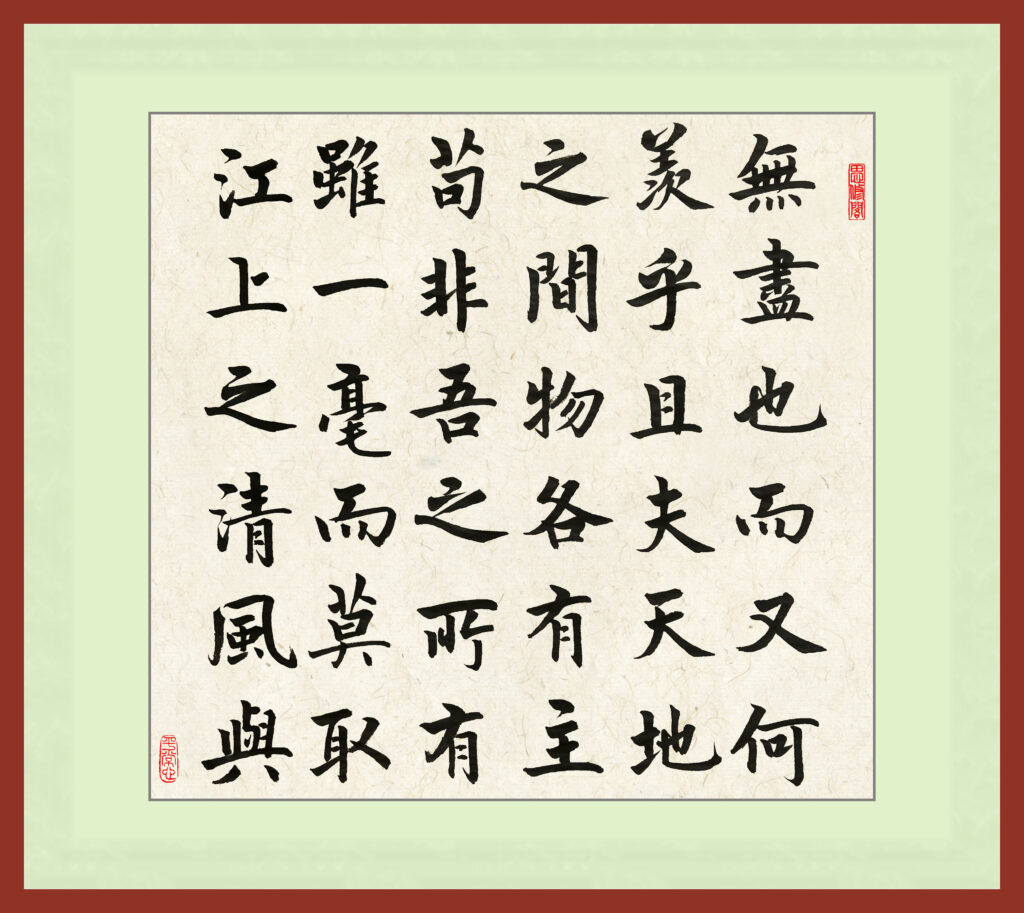 無盡也而又何
羨乎且夫天地
之間物各有主
苟非吾之所有
雖一毫而莫取
江上之清風與
平常心